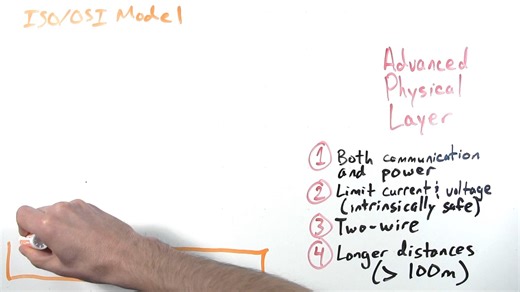 ISO/OSI Model
Advanced
Physical
Layer
1 Both communication
and power
2 Limit current & voltage
(intrinsically safe)
3 Two-wire
4 Longer distances
(> 100m)